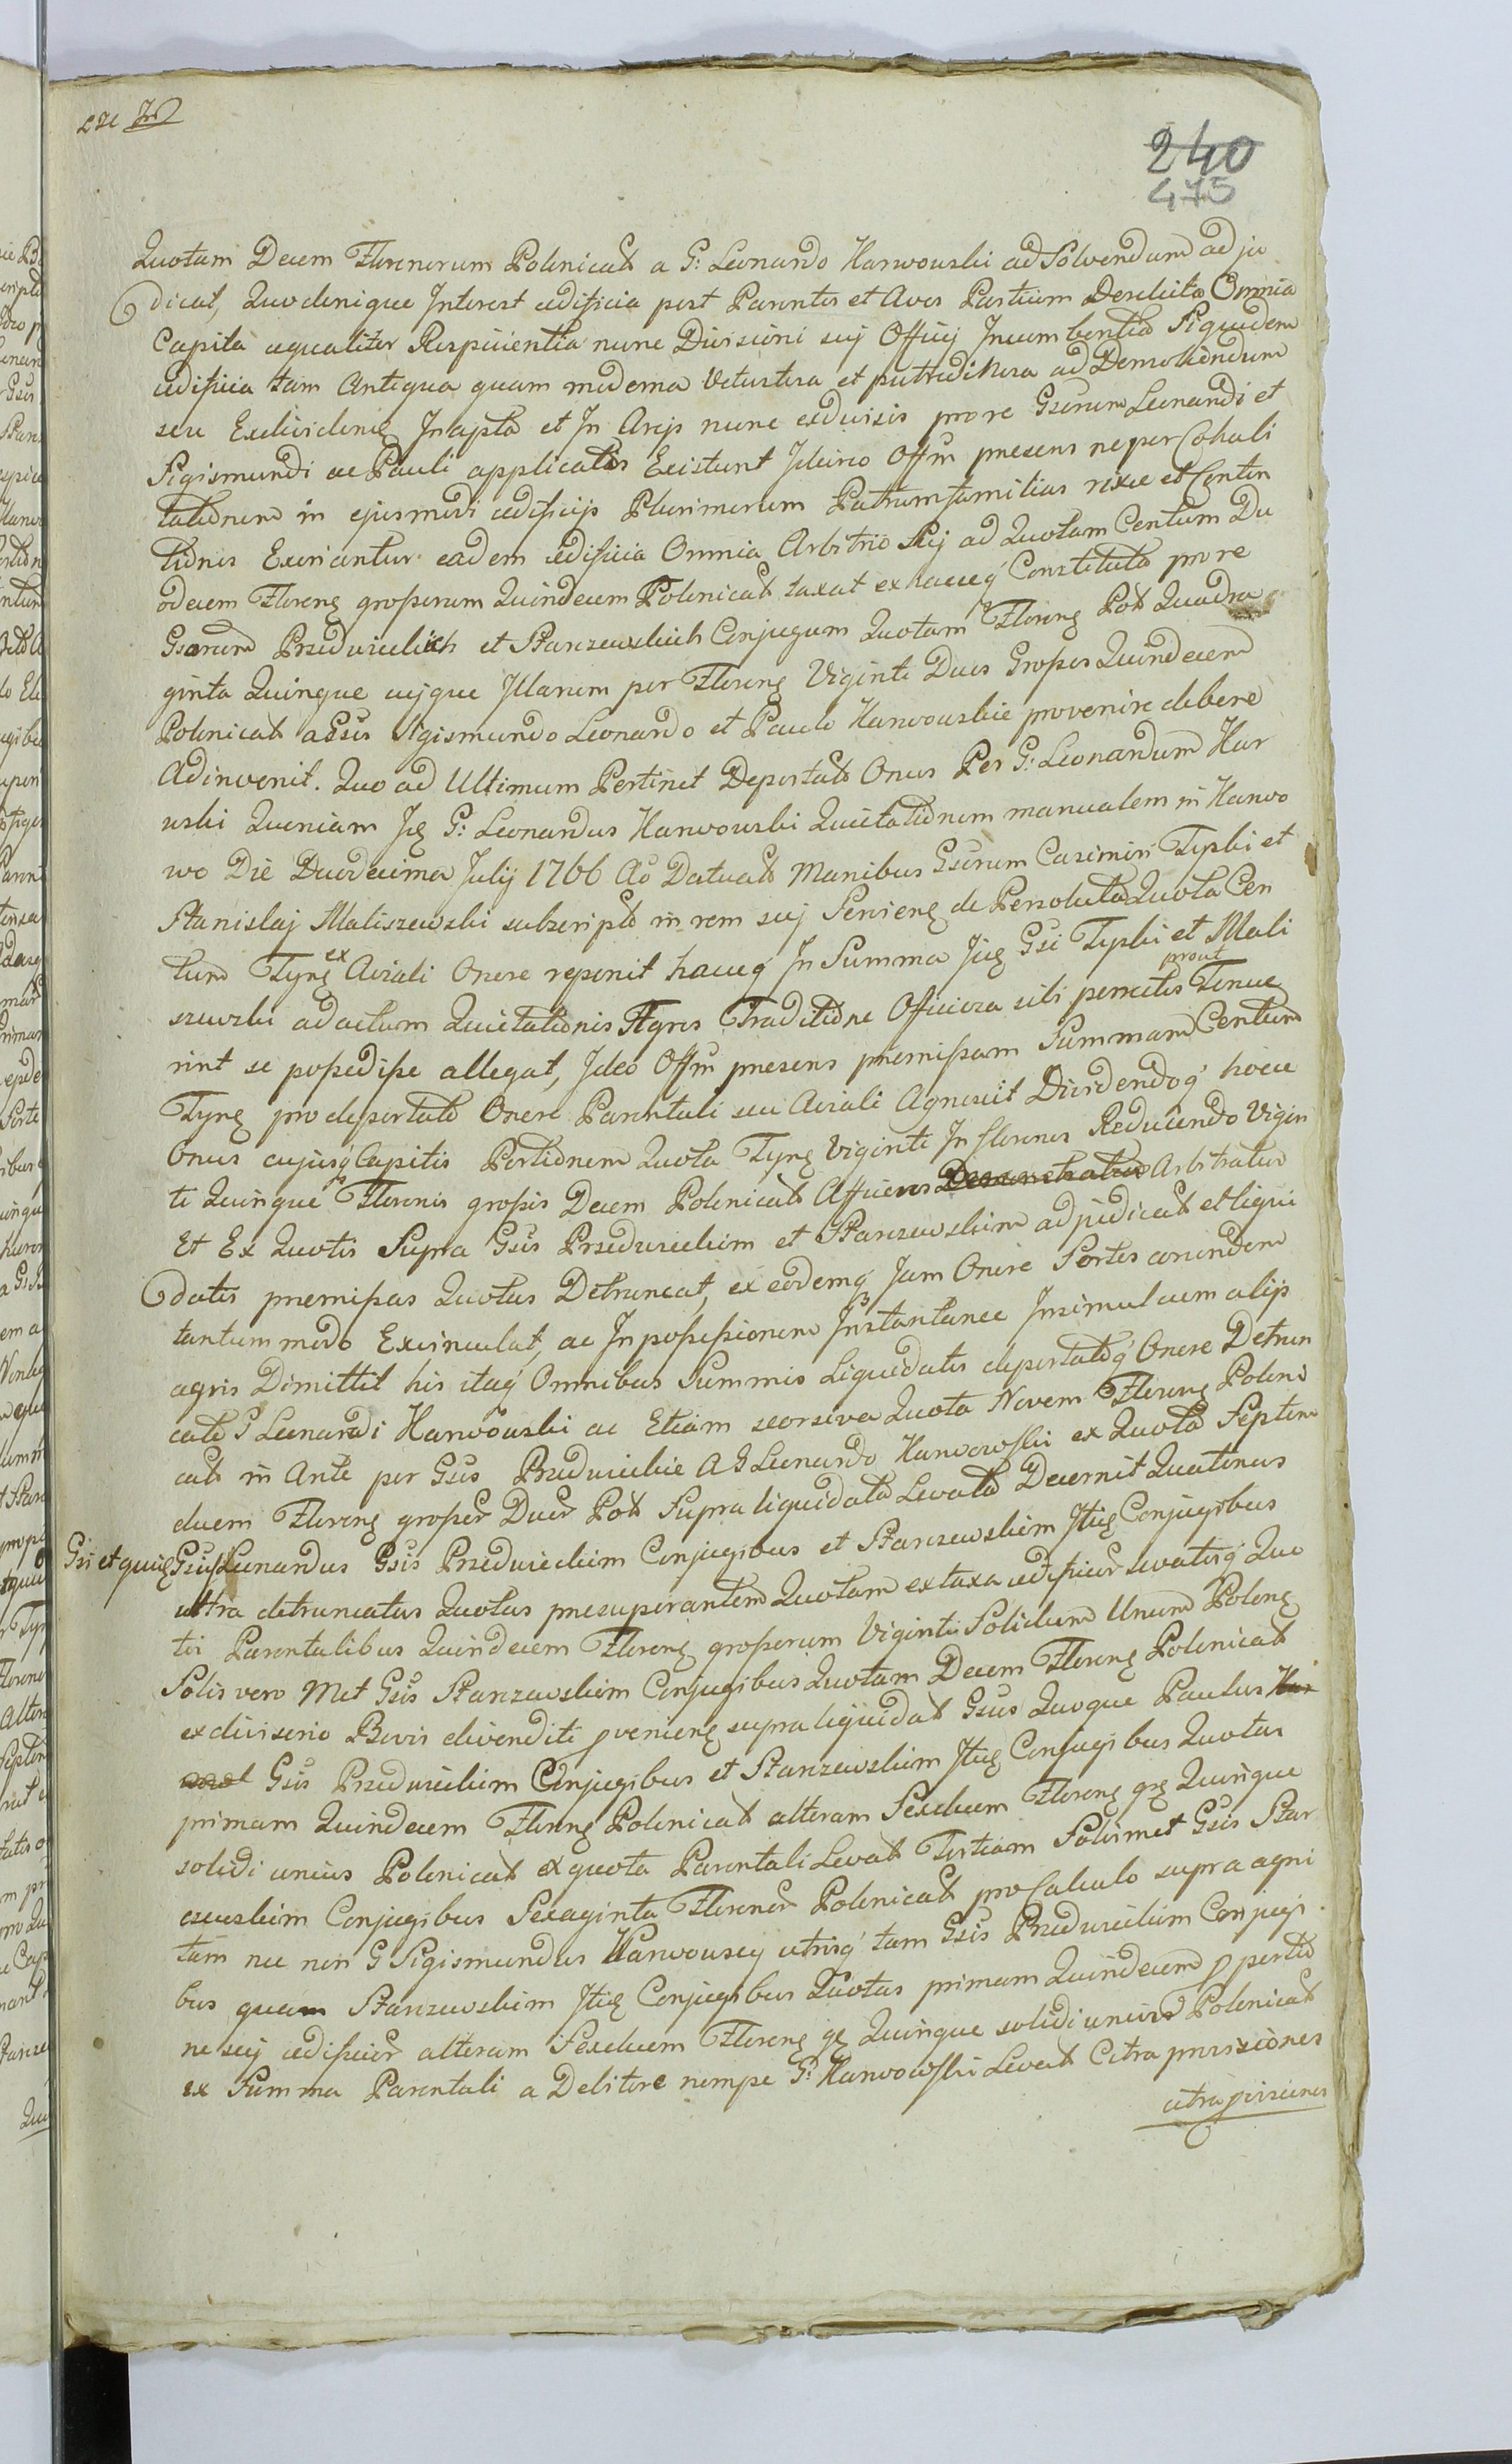 240
475
Quotam Decem Florenorum Polonical a G: Leonardo Karwowski ad Solvendum adju
dicat, Quo denique Interest ædificia post Parentes et Avos Partium Derelicta Omnia
Capita æqualiter Respicientia nunc Divisioni sui Officij Incumbentia Siquidem
ædificia tam Antiqua quam moderna Vetustera et putredinosa ad Demoliendum
seu Exdividenḍ Inapta et In Areis nunc exdivisis pro re Gsorum Leonardi et
Sigismundi ac Pauli applicatis Existunt Idcirco Offm presens ne per Cohabi
tationem in ejusmodi ædificijs Plurimorum Patrumfamilias rixæ et Conten
tiones Exoriantur eadem ædificia Omnia Arbitrio sui ad Quotam Centum Du
odecem Floren grossorum Quindecem Polonical taxat ex eacq Constituta pro re
Gsorum Przedwieckich et Stanzewskich Conjugum Quotam Floren Pol Quadra
ginta Quinque cujque Illarum per Floren Viginti Duos Grossos Quindecem
Polonical a Gsis Sigismundo Leonardo et Paulo Karwowskie provenire debere
Adinvenit. Quo ad Ultimum Pertinet Deportati Onus Per G: Leonardum Kar
wski Quoniam G: Leonardus Karwowski Quietationem manualem in Karwo
wo Die Duodecima Julij 1766 Ao Datuat Manibus Gsorum Casimiri Typki et
Stanislaj Maliszewski subscripto in rem sui Servienḍ de Persoluta Quota Cen
tum Tynf ex Aviali Onere reponit hacq In Summa Gsi Typki et Mali
szewski ad actum Quietationis Agros Traditione Officiosa sibi permitis prout Tenue
rint se possedisse allegat, Ideo Offm presens premissam Summam Centum
Tynf pro deportato Onere Parentali seu Aviali Agnoscit Dividendoq hocce
Onus cujusq Capitis Portionem Quota Tynf Viginti In florenos Reducendo Vigin
ti Quinque Florenis grossis Decem Polonical Afficere Arbitratur
Et Ex Quotis Supra Gsis Przedwieckim et Stanzewskim adjudicat et liqui
datis premissas Quotas Detruncat, ex eodemq Jam Onere Sortes eorundem
tantummodo Exvinculat, ac In possessionem Instantanee Insimul cum alijs
agris Dimittit his itaq Omnibus Summis Liquidatis deportatoq Onere Detrun
cato G Leonardi Karwowski ac Etiam seorsiva Quota Novem Floren Poloni
cal in Ante per Gsos Przedwieckie A G Leonardo Karwowski ex Quota Septem
decem Floren grosser Duor Pol Supra liquidata Levata Decernit Quatenus
Gsi et quidem Gsus Leonardus Gsis Przedwieckim Conjugibus et Stanzewskim Conjugibus
ultra detruncatas Quotas presuperantem Quotam ex taxa ædificior levatisq Quo
tis Parentalibus Quindecem Floren grossorum Viginti Solidum Unum Polon
Solis vero Met Gsis Stanzewskim Conjugibus Quotam Decem Floren Polonical
ex diviserio Bovis divenditi provenien supra liquidat Gsus Quoque Paulus
Gsis Przedwieckim Conjugibus et Stanzewskim Conjugibus Quotas
primam Quindecem Floren Polonical alteram Sexdecem Floren gr Quinque
solidi unius Polonical ex quota Parentali Levat Tertiam Solismet Gsis Stan
czewskim Conjugibus Sexaginta Florenor Polonical pro Calculo supra agni
tam nec non G Sigismundus Karwowscy utrisq tam Gsis Przedwieckim Conjugi
bus quam Stanzewskim Conjugibus Quotas primam Quindecem p portio
ne sui ædificior alteram Sexdecem Floren gr Quinque solidi unius Polonical
ex Summa Parentali a Debitore nempe G: Karwowski Levat Citra provisiones
citra provisiones